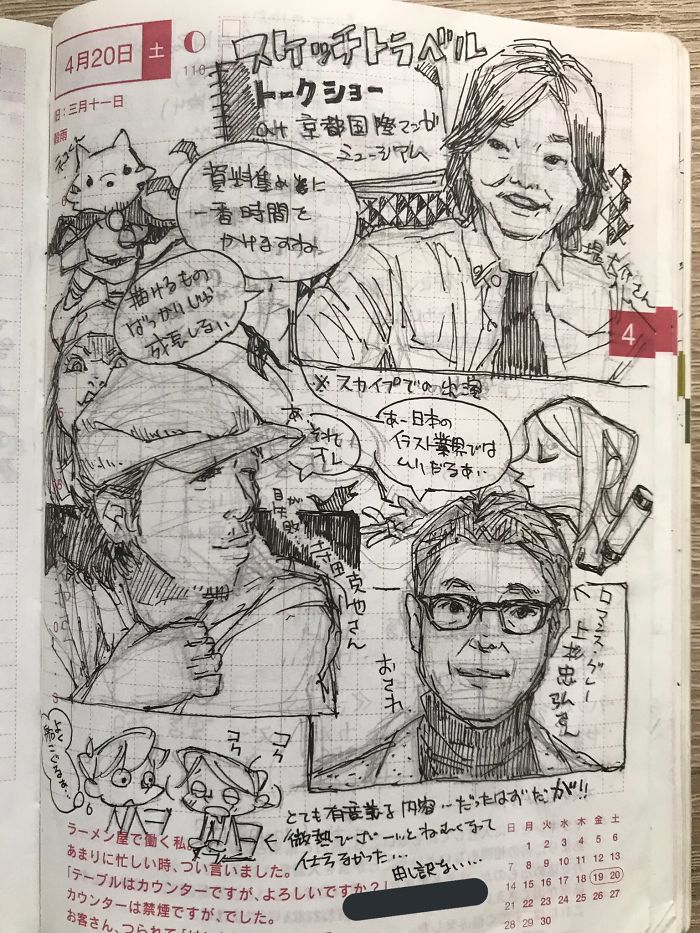 4月20日
土
110
旧：三月十一日
穀雨
スケッチトラベル
トークショー
at 京都国際マンガ
ミュージアム
資料集めに
一番時間を
かけるすね
描けるもの
ばっかりじゃ
成長しない
堤大介さん
4
※スカイプでの出演
あ、
それ
あ〜日本の
イラスト業界では
ムリだろあ…
目が
失敗
寺田克也さん
ロマンスグレー
上杉忠弘さん
おされ
よく
コク
コク
とても有意義な内容…だったはずだが!!
微熱でボーッとねむくなって
仕方なかった…
申し訳ない…
ラーメン屋で働く私
あまりに忙しい時、つい言いました。
「テーブルはカウンターですが、よろしいですか？」
カウンターは禁煙ですが、でした。
お客さん、つられて「はい
日 月 火 水 木 金 土
1 2 3 4 5 6
7 8 9 10 11 12 13
14 15 16 17 18 19 20
21 22 23 24 25 26 27
28 29 30